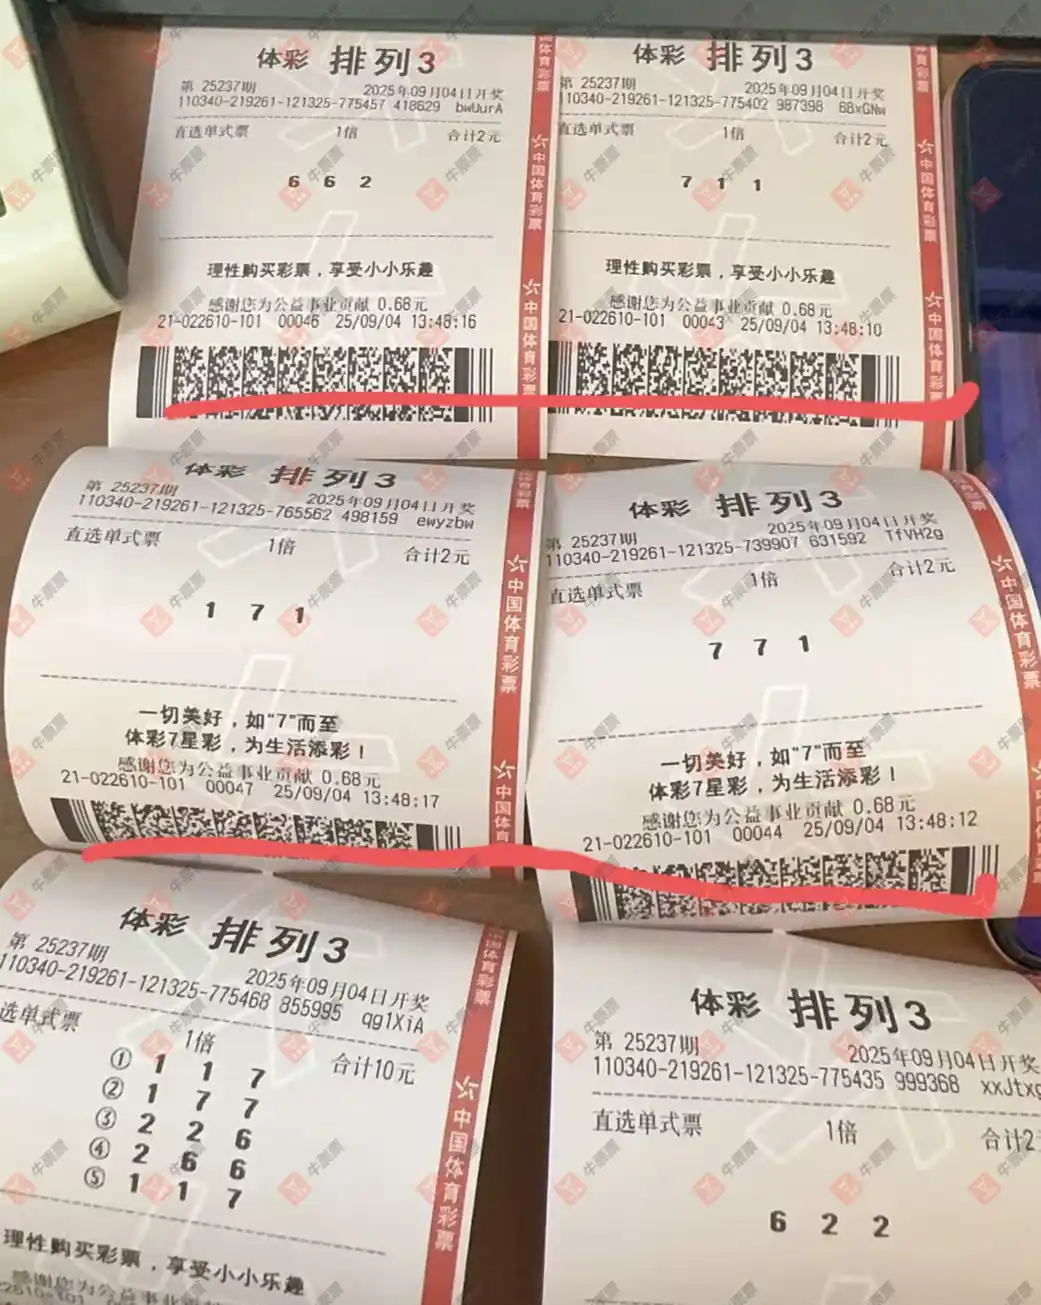 体彩 排列3
第 25237期
2025年09月04日开奖
110340-219261-121325-775457 418629 bwUurA
直选单式票 1倍 合计2元
6 6 2
理性购买彩票，享受小小乐趣
感谢您为公益事业贡献 0.68元
21-022610-101 00046 25/09/04 13:48:16
中国体育彩票
中国体育彩票
体彩 排列3
第 25237期
2025年09月04日开奖
110340-219261-121325-775402 987398 68xGNw
直选单式票 1倍 合计2元
7 1 1
理性购买彩票，享受小小乐趣
感谢您为公益事业贡献 0.68元
21-022610-101 00043 25/09/04 13:48:10
中国体育彩票
中国体育彩票
体彩 排列3
第 25237期
2025年09月04日开奖
110340-219261-121325-765562 498159 ewyzbw
直选单式票 1倍 合计2元
1 7 1
一切美好，如“7”而至
体彩7星彩，为生活添彩！
感谢您为公益事业贡献 0.68元
21-022610-101 00047 25/09/04 13:48:17
中国体育彩票
中国体育
体彩 排列3
第 25237期
2025年09月04日开奖
110340-219261-121325-739907 631592 TfVH2g
直选单式票 1倍 合计2元
7 7 1
一切美好，如“7”而至
体彩7星彩，为生活添彩！
感谢您为公益事业贡献 0.68元
21-022610-101 00044 25/09/04 13:48:12
中国体育彩票
体彩 排列3
第 25237期
2025年09月04日开奖
110340-219261-121325-775468 855995 qg1XiA
选单式票 1倍 合计10元
① 1 1 7
② 1 7 7
③ 2 2 6
④ 2 6 6
⑤ 1 1 7
理性购买彩票，享受小小乐趣
感谢您为公益事业贡献
中国体育彩票
体彩 排列3
第 25237期
2025年09月04日开奖
110340-219261-121325-775435 999368 xxJtxg
直选单式票 1倍 合计2
6 2 2
牛票票